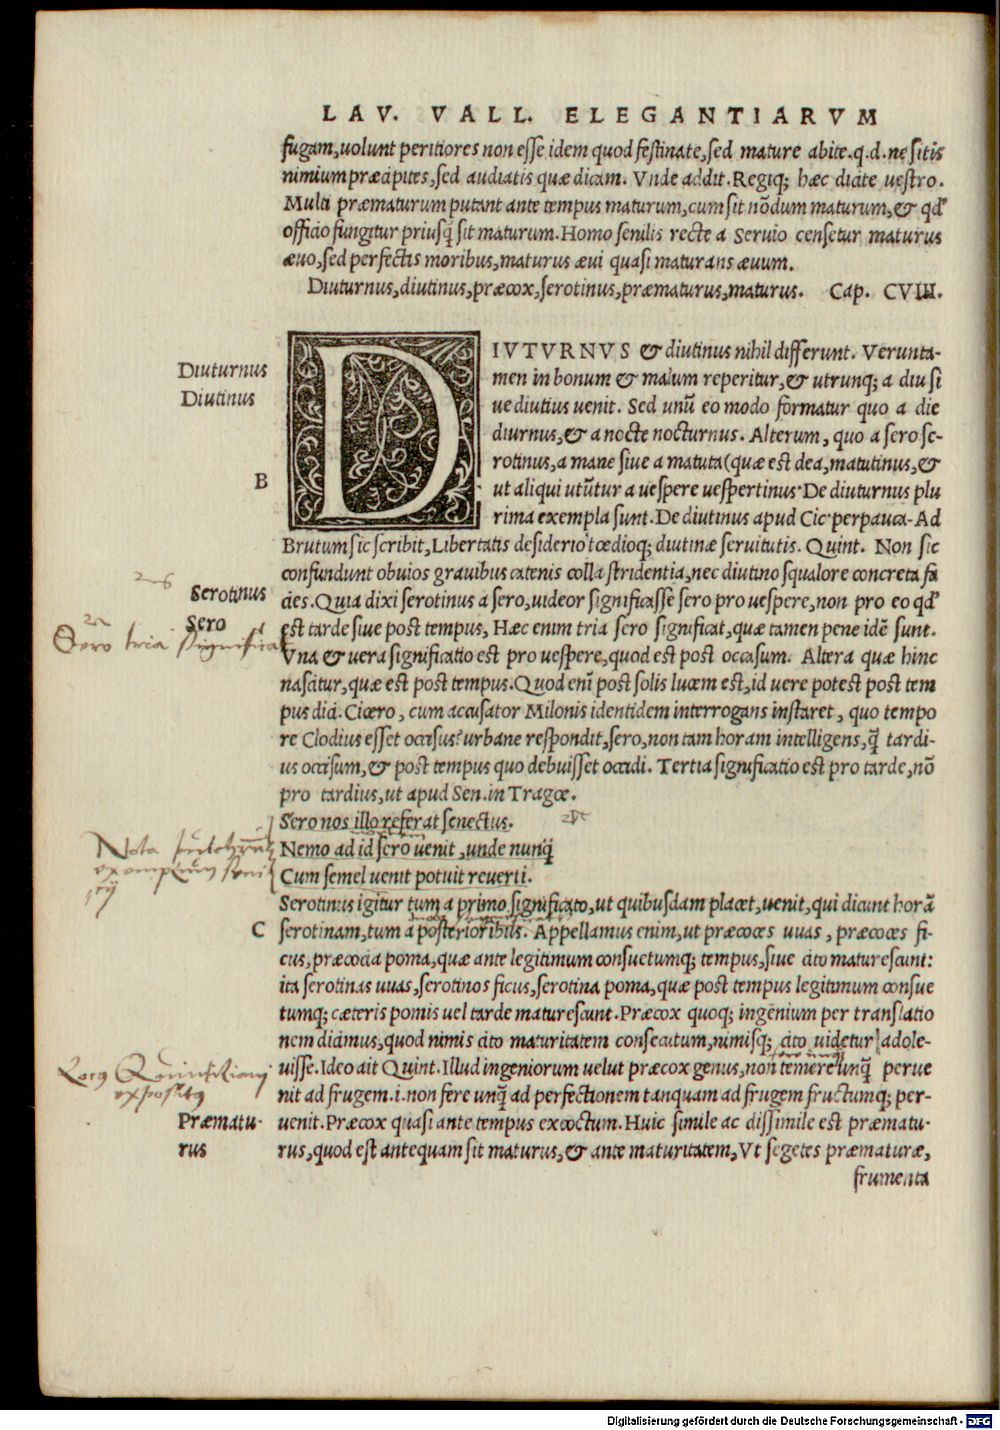 LAV. VALL. ELEGANTIARVM
fugam,uolunt peritiores non esse idem quod festinate,sed mature abite.q.d.ne sitis
nimium præcipites,sed audiatis quæ dicam. Vnde addit. Regiq; hæc dicite uestro.
Multi præmaturum putant ante tempus maturum,cum sit nōdum maturum,& qd'
officio fungitur priusq̃ sit maturum. Homo senilis recte a Seruio censetur maturus
æuo,sed perfectis moribus,maturus æui quasi maturans æuum.
Diuturnus,diutinus,præcox,serotinus,præmaturus,maturus. Cap. CVIII.
DIVTVRNVS & diutinus nihil differunt. Verunta-
Diuturnus
men in bonum & malum reperitur,& utrunq; a diu si
Diutinus
ue diutius uenit. Sed unū eo modo formatur quo a die
diurnus,& a nocte nocturnus. Alterum, quo a sero se-
rotinus,a mane siue a matuta(quæ est dea,matutinus,&
B
ut aliqui utūtur a uespere uespertinus·De diuturnus plu
rima exempla sunt.De diutinus apud Cic·perpauca-Ad
Brutum sic scribit,Libertatis desiderio tœdioq; diutinæ seruitutis. Quint. Non sic
confundunt obuios grauibus catenis colla stridentia,nec diutino squalore concreta fa
Serotinus
cies.Quia dixi serotinus a sero,uideor significasse sero pro uespere,non pro eo qd'
Sero
est tarde siue post tempus, Hæc enim tria sero significat,quæ tamen pene idē sunt.
Sero tria significat
Vna & uera significatio est pro uespere,quod est post occasum. Altera quæ hinc
nascitur,quæ est post tempus.Quod eni post solis lucem est,id uere potest post tem
pus dici. Cicero, cum accusator Milonis identidem interrogans instaret, quo tempo
re Clodius esset occisus?urbane respondit,sero,non tam horam intelligens,q̃ tardi-
us occisum,& post tempus quo debuisset occidi. Tertia significatio est pro tarde,nō
pro tardius,ut apud Sen.in Tragœ.
Sero nos illo referat senectus.
Nota pulchrum
Nemo ad id sero uenit,unde nunq̃
exemplum
Cum semel uenit potuit reuerti.
Serotinus igitur tum a primo significato,ut quibusdam placet,uenit,qui dicunt horā
C
serotinam,tum a posterioribus. Appellamus enim,ut præcoces uuas, præcoces fi-
cus,præcocia poma,quæ ante legitimum consuetumq; tempus,siue cito maturescunt:
ita serotinas uuas,serotinos ficus,serotina poma,quæ post tempus legitimum consue
tumq; cæteris pomis uel tarde maturescunt.Præcox quoq; ingenium per translatio
nem dicimus,quod nimis cito maturitatem consecutum,nimisq; cito uidetur adole-
uisse.Ideo ait Quint.Illud ingeniorum uelut præcox genus,non temere unq̃ perue
Locus Quintiliani
expositus
nit ad frugem.i.non fere unq̃ ad perfectionem tanquam ad frugem fructumq; per-
Præmatu-
uenit.Præcox quasi ante tempus excoctum.Huic simile ac dissimile est præmatu-
rus
rus,quod est antequam sit maturus,& ante maturitatem,Vt segetes præmaturæ,
frumenta
Digitalisierung gefördert durch die Deutsche Forschungsgemeinschaft - DFG